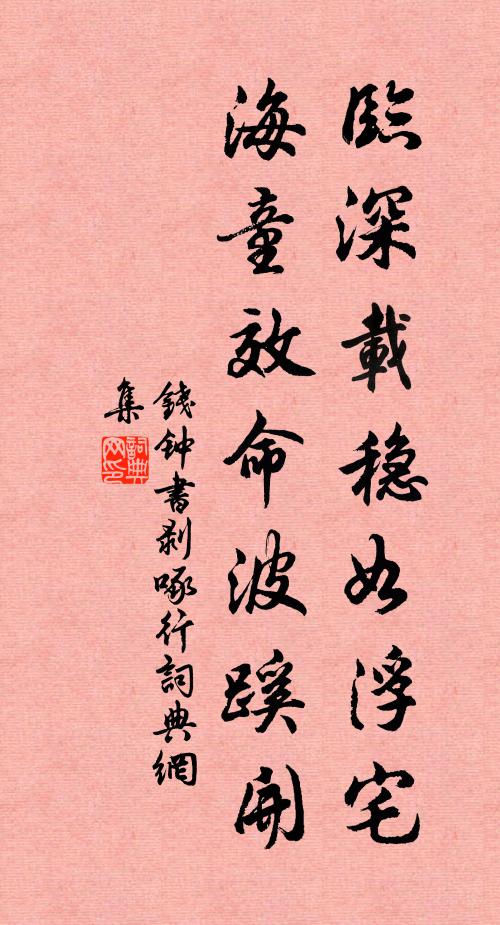 臨深載穏如浮宅
海童效命波蹊開
錢钟書剥啄行詞典網
集
詞典網印